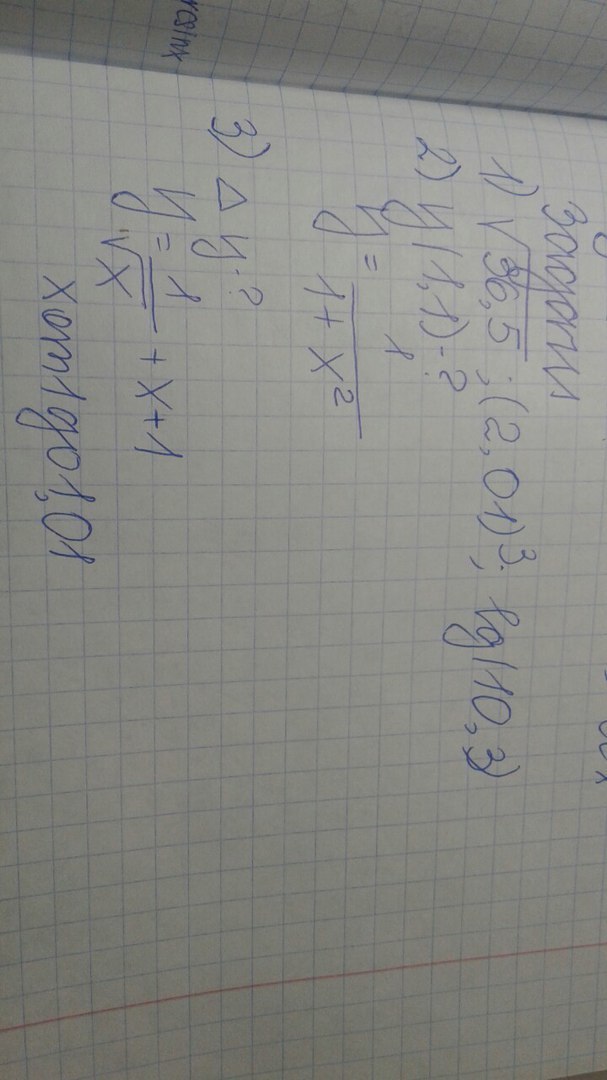 Задачи
1) √36,5 ; (2,01)³; lg(10,3)
2) y(1,1)-?
y = 1/(1+x²)
3) Δy-?
y = 1/√x + x+1
x от 1 до 1,01